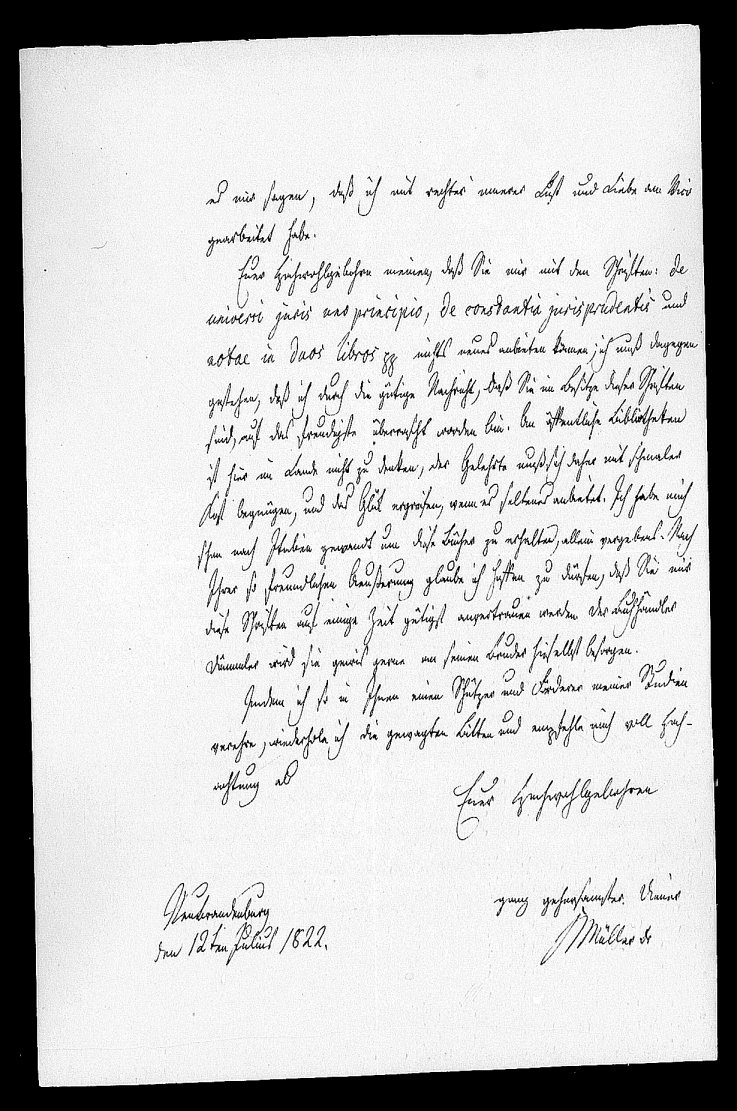 es mir sagen, daß ich mit rechter innerer Lust und Liebe am Vico
gearbeitet habe.
Euer Hochwohlgebohrn meinen, daß Sie mir mit den Schriften: de
universi juris uno principio, de constantia jurisprudentis und
notae in duos libros pp nichts neues anbieten können; ich muß dagegen
gestehen, daß ich durch die gütige Nachricht, daß Sie im Besitze dieser Schriften
sind, auf das freudigste überrascht worden bin. An öffentliche Bibliotheken
ist hier im Lande nicht zu denken, der Gelehrte muß sich daher mit schmaler
Kost begnügen, und das Glük ergreifen, wenn es seltenes anbietet. Ich habe mich
schon nach Italien gewandt um diese Bücher zu erhalten, allein vergebens. Nach
Ihrer so freundlichen Aeußerung glaube ich hoffen zu dürfen, daß Sie mir
diese Schriften auf einige Zeit gütigst anvertrauen werden. Der Buchhändler
Dümmler wird sie gewis gerne an seinen Bruder hieselbst besorgen.
Indem ich so in Ihnen einen Schützer und Förderer meiner Studien
verehre, wiederhole ich die gewagten Bitten und empfehle mich voll Hoch-
achtung als
Euer Hochwohlgebohren
ganz gehorsamster Diener
Müller dr
Neubrandenburg
den 12ten Julius 1822.